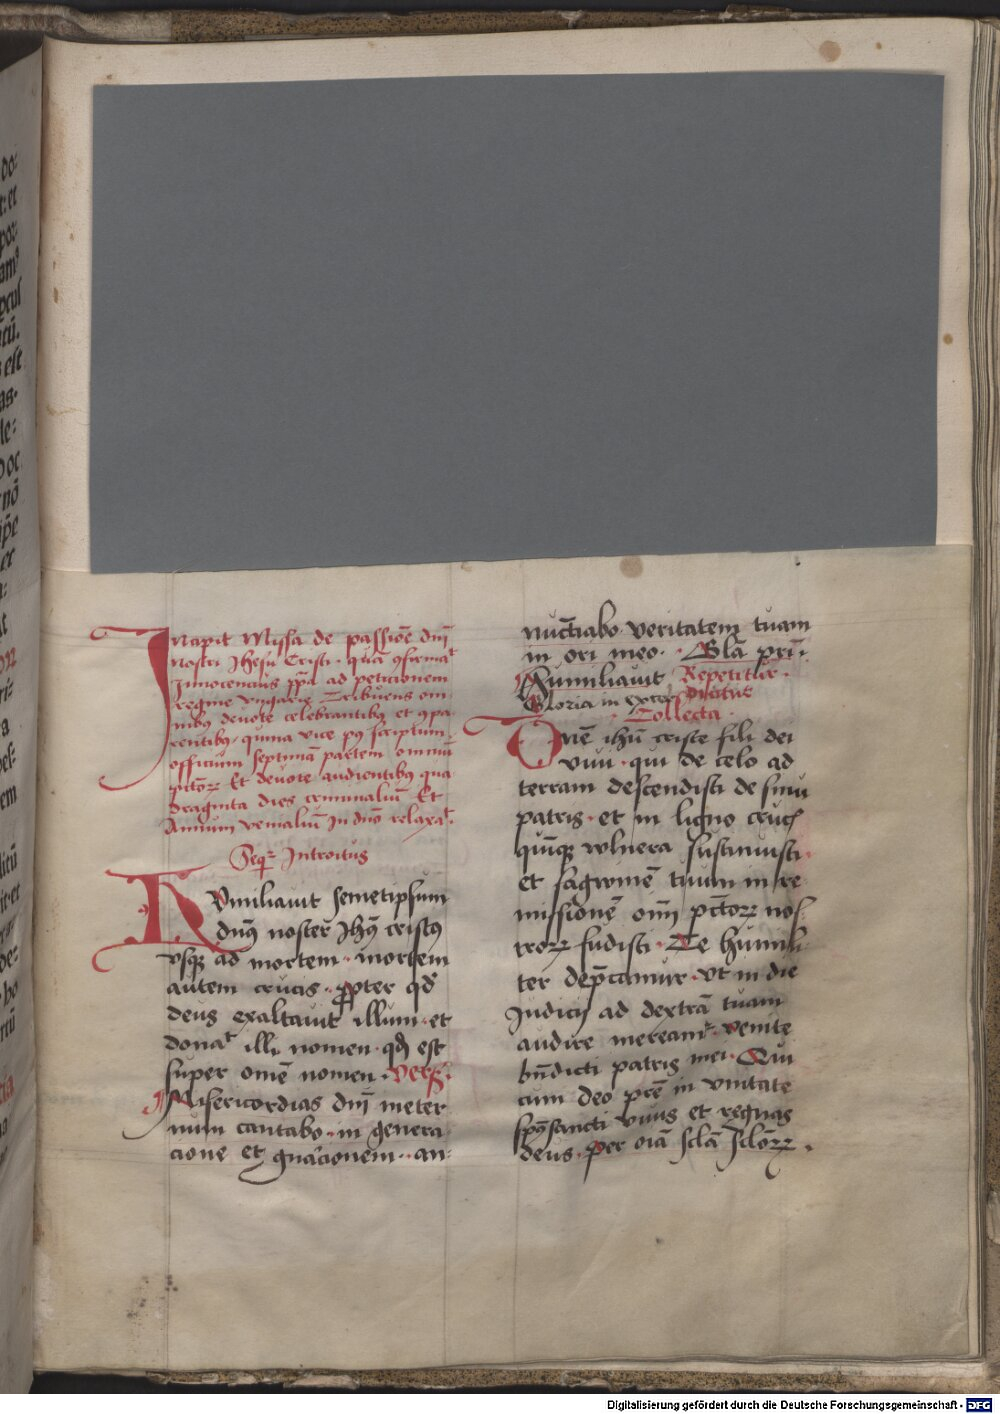 Incipit Missa de passiōe dn̄i
nostri Jhesu Cristi · quā ꝯfirmaᵗ
Innocencius pp̄a ad peticionem
regine vngarie Tribuens om
nibꝰ deuote celebrantibꝰ et ꝯpa
rentibꝰ, quina vice pꝰ scriptum
officium septimā partem omniū
pctōꝝ Et deuote audientibꝰ qua
draginta dies criminaliū Et
Annum venialiū In dn̄o relaxaᵗ.
Seqᵗ Introitus
HVmiliauit semetipsum
dn̄ꝰ noster Jhūs cristꝰ
vsqꝫ ad mortem · mortem
autem crucis · ꝓpter qd̄
deus exaltauit illum · et
donaᵗ illi nomen · qd̄ est
super omē nomen · Versꝰ ·
Misericordias dn̄i in eter
num cantabo · in genera
cione et gnācionem · an-
nuncc̄iabo veritatem tuam
in ori meo · Glā pri ·
Humiliauit Repetitur ·
Gloria in excelsis dicitur
Collecta ·
DN̄e ihū criste fili dei
viui · qui de celo ad
terram descendisti de sinu
patris · et in ligno crucis
quīqꝫ vlnera sustinuisti ·
et sagwinē tuum in re
missionē om̄ pctōꝝ nos
troꝝ fudisti · Te humili
ter dep̄camur · vt in die
Judicij ad dextrā tuam
audire mereamᵗ · venite
bn̄dicti patris mei · Qui
cum deo pr̄e in vnitate
sp̄s sancti viuis et regnas
deus · per oīa sclā sclōꝝ ·
Digitalisierung gefördert durch die Deutsche Forschungsgemeinschaft - DFG